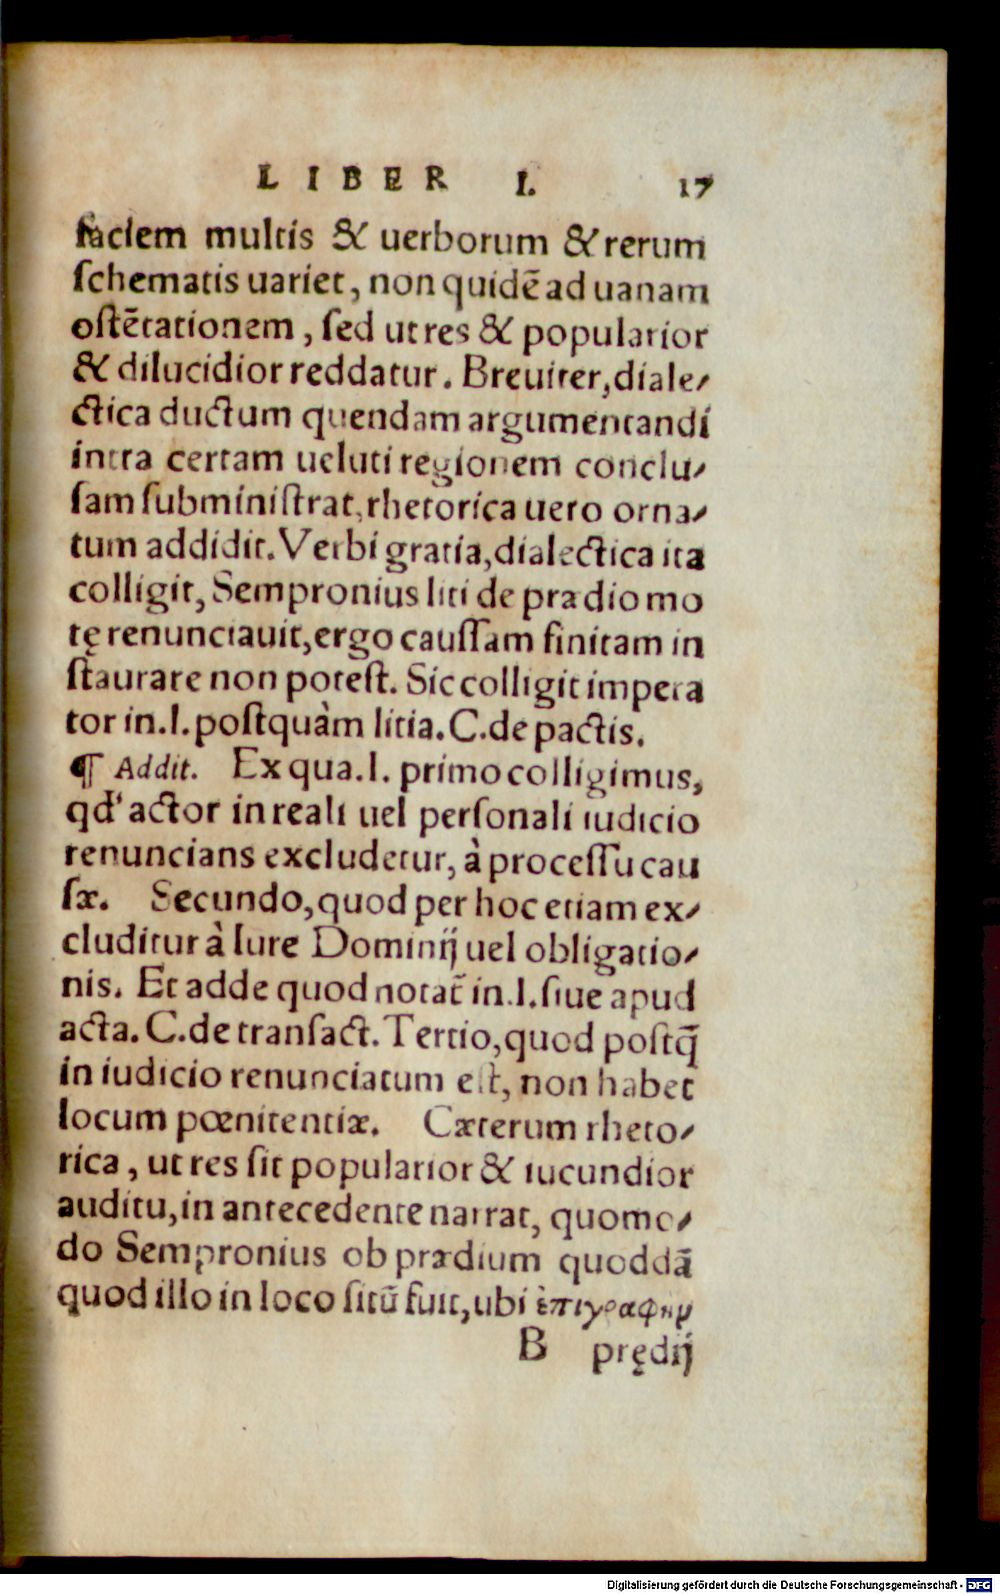 LIBER I. 17
faciem multis & uerborum & rerum
ſchematis uariet, non quidẽ ad uanam
oſtẽtationem, ſed ut res & popularior
& dilucidior reddatur. Breuiter, diale⸗
ctica ductum quendam argumentandi
intra certam ueluti regionem conclu⸗
ſam ſubminiſtrat, rhetorica uero orna⸗
tum addidit. Verbi gratia, dialectica ita
colligit, Sempronius liti de prædio mo
tę renunciauit, ergo cauſſam finitam in
ſtaurare non poteſt. Sic colligit impera
tor in.l.poſtquàm litia.C.de pactis.
¶ Addit. Ex qua.l. primo colligimus,
qd' actor in reali uel perſonali iudicio
renuncians excludetur, à proceſſu cau
ſæ. Secundo, quod per hoc etiam ex⸗
cluditur à Iure Dominij uel obligatio⸗
nis. Et adde quod notat̃ in.l.ſiue apud
acta.C.de tranſact. Tertio, quod poſtq̃
in iudicio renunciatum eſt, non habet
locum pœnitentiæ. Cæterum rheto⸗
rica, ut res ſit popularior & iucundior
auditu, in antecedente narrat, quomo⸗
do Sempronius ob prædium quoddã
quod illo in loco ſitũ fuit, ubi ἐπιγραφὴμ
B prędij
Digitalisierung gefördert durch die Deutsche Forschungsgemeinschaft - DFG